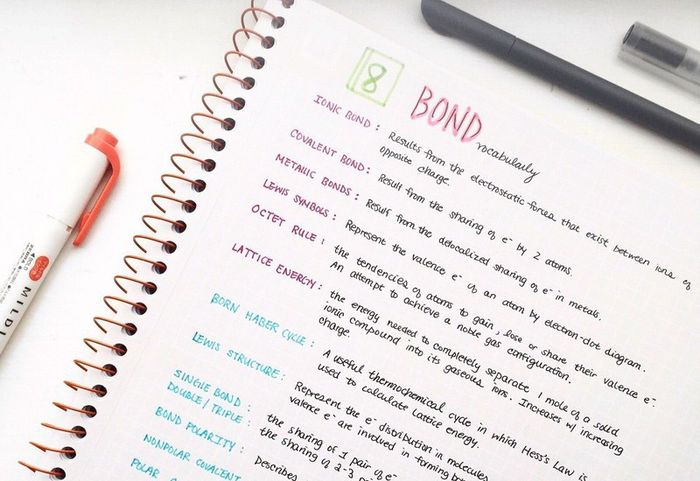 8 BOND vocabulaily
IONIC BOND: Results from the electrostatic forces that exist between ions of
opposite charge.
COVALENT BOND: Result from the sharing of e⁻ by 2 atoms.
METALLIC BONDS: Result from the delocalized sharing of e⁻ in metals.
LEWIS SYMBOLS: Represent the valence e⁻ of an atom by electron-dot diagram.
OCTET RULE: the tendencies of atoms to gain, lose or share their valence e⁻.
An attempt to achieve a noble gas configuration.
LATTICE ENERGY: the energy needed to completely separate 1 mole of a solid
ionic compound into its gaseous ions. Increases w/ increasing
charge.
BORN HABER CYCLE: A useful thermochemical cycle in which Hess's Law is
used to calculate Lattice energy.
LEWIS STRUCTURE: Represent the e⁻ distribution in molecules
valence e⁻ are involved in forming
SINGLE BOND: the sharing of 1 pair of e⁻
DOUBLE/TRIPLE: the sharing of 2-3
BOND POLARITY: Describes
NONPOLAR COVALENT
POLAR
MILDL